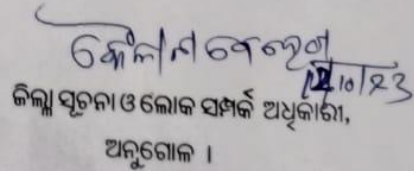 12/10/23
ଜିଲ୍ଲା ସୂଚନା ଓ ଲୋକ ସମ୍ପର୍କ ଅଧିକାରୀ,
ଅନୁଗୋଳ ।